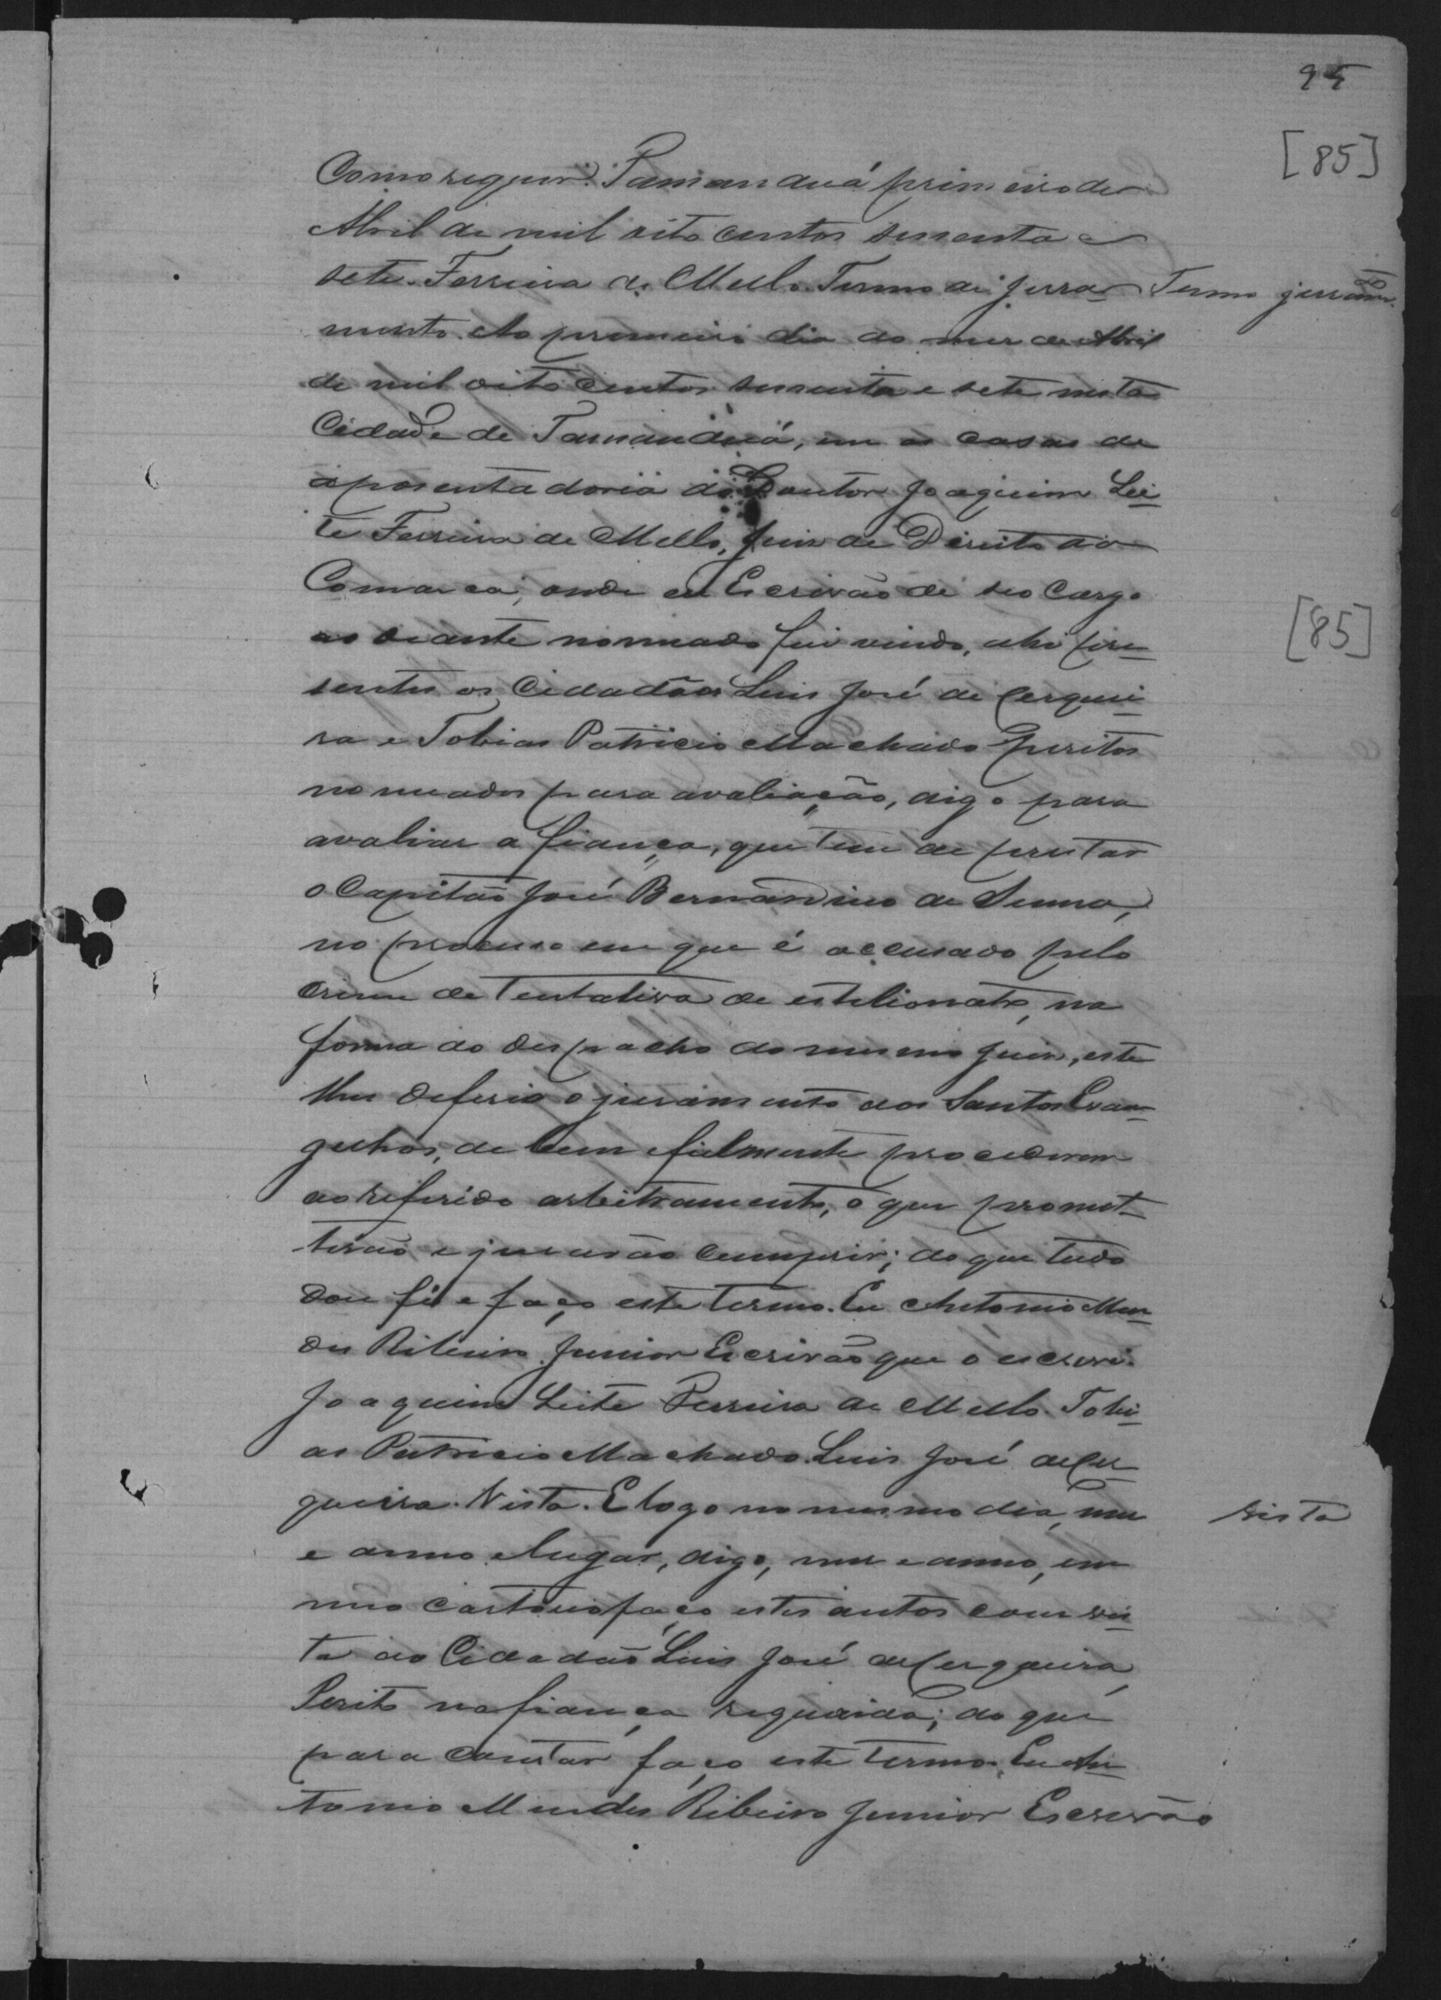 95
[85]
Como requer. Tamanduá primeiro de
Abril de mil oito centos secenta e
sete. Ferreira de Mello. Termo de jura-
Termo juramto.
mento. Ao primeiro dia do mes de Abril
de mil oito centos secenta e sete nesta
Cidade de Tamanduá, em as casas de
aposentadoria do Doutor Joaquim Lei-
te Ferreira de Mello, Juis de Direito da
Comarca, onde eu Escrivão de seo cargo
ao diante nomeado fui vindo, ahi pre-
sentes os Cidadãos Luis José de Cerquei-
ra e Tobias Patricio Machado Peritos
nomeados para avaliação, digo para
avaliar a fiança, que tem de prestar
o Capitão José Bernardino de Senna,
no processo em que é accusado pelo
crime de tentativa de estelionato, na
forma do despacho do mesmo Juis, este
lhes deferio o juramento dos Santos Evan-
gelhos, de bem e fielmente procederem
ao referido arbitramento, o que promet-
terão e jurarão cumprir; do que tudo
dou fé e faço este termo. Eu Antonio Men-
des Ribeiro Junior Escrivão que o escrevi.
Joaquim Leite Ferreira de Mello. Tobi-
as Patricio Machado. Luis José de Cer-
queira. Vista. E logo no mesmo dia, mes
vista
e anno e lugar, digo, mes e anno, em
meo cartorio faço estes autos com vis-
ta ao Cidadão Luis José de Cerqueira,
Perito na fiança requerida; do que
para constar faço este termo. Eu An-
tonio Mendes Ribeiro Junior Escrivão
[85]